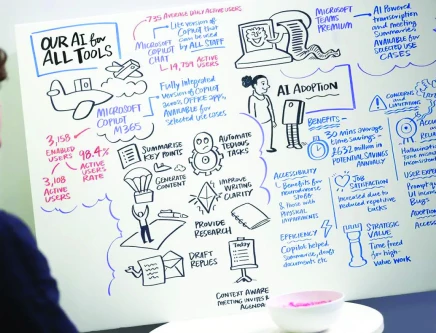 OUR AI for
ALL TOOLS
735 AVERAGE DAILY ACTIVE USERS
MICROSOFT
COPILOT
CHAT
Lite version of
COPILOT that
can be used
by ALL STAFF
19,759 ACTIVE
USERS
MICROSOFT
COPILOT
M365
Fully integrated
version of COPILOT
across OFFICE apps,
AVAILABLE for
selected use cases
3,158
ENABLED
USERS
98.4%
ACTIVE
USERS
RATE
3,108
ACTIVE
USERS
SUMMARISE
KEY POINTS
AUTOMATE
TEDIOUS
TASKS
GENERATE
CONTENT
IMPROVE
WRITING
CLARITY
PROVIDE
RESEARCH
DRAFT
REPLIES
Today
CONTEXT AWARE
MEETING INVITES &
AGENDA
MICROSOFT
TEAMS
PREMIUM
AI Powered
transcription
and meeting
Summaries
AVAILABLE for
SELECTED USE
CASES
AI ADOPTION
BENEFITS
30 mins average
time savings
£632 million in
POTENTIAL SAVINGS
ANNUALLY
ACCESSIBILITY
Benefits for
neurodiverse
staff
& those with
PHYSICAL
IMPAIRMENTS
JOB
SATISFACTION
Increased due to
reduced repetitive
tasks
EFFICIENCY
Copilot helped
summarise, draft
documents etc
STRATEGIC
VALUE
Time freed
for high
value work
CONCERNS
and LIMITATIONS
USER EXPER
ADOPTION